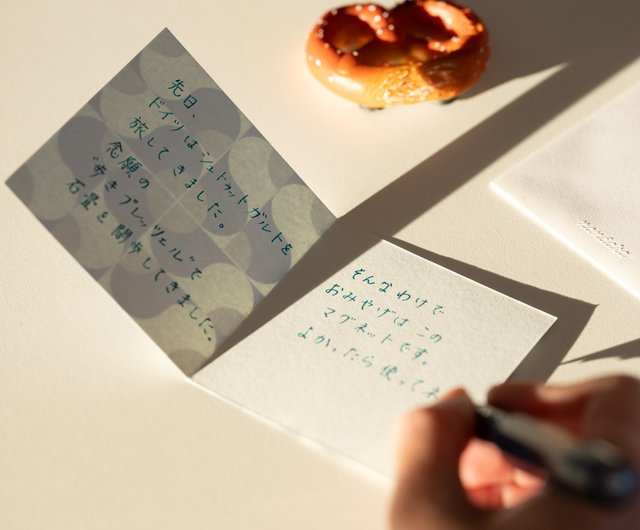 先日、
ドイツはシュトゥットガルトを
旅してきました。
念願の
“歩きプレッツェル”で
石畳を闊歩してきました。
そんなわけで
おみやげはこの
マグネットです。
よかったら使ってネ